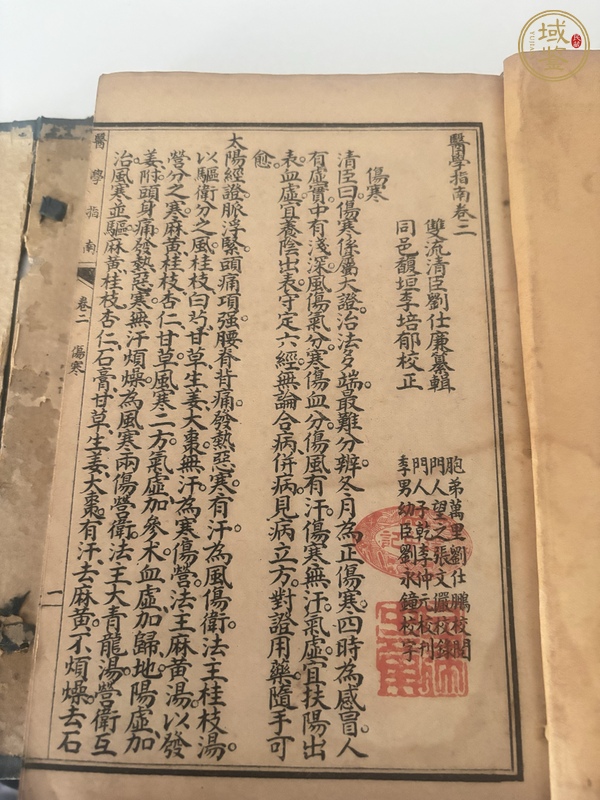 醫學指南卷二
雙流清臣劉仕廉纂輯
同邑馥垣李培郁校正
胞弟萬里劉仕鵬校閱
門人望之張文儼校錄
門人子乾李仲元校刊
季男幼臣劉永鐘校字
傷寒
清臣曰傷寒係屬大證治法多端最難分辨冬月為正傷寒四時為感冒人
有虛實中有淺深風傷氣分寒傷血分傷風有汗傷寒無汗氣虛宜扶陽出
表血虛宜養陰出表守定六經無論合病併病見病立方對證用藥隨手可
愈
太陽經證脈浮緊頭痛項强腰脊背痛發熱惡寒有汗為風傷衛法主桂枝湯
以驅衛分之風桂枝白芍甘草生姜大棗無汗為寒傷營法主麻黃湯以發
營分之寒麻黃桂枝杏仁甘草風寒二方氣虛加參术血虛加歸地陽虛加
姜附頭身痛發熱惡寒無汗煩燥為風寒兩傷營衛法主大青龍湯營衛互
治風寒並驅麻黃桂枝杏仁石膏甘草生姜大棗有汗去麻黃不煩燥去石
醫學指南
卷二 傷寒
二
域鑒